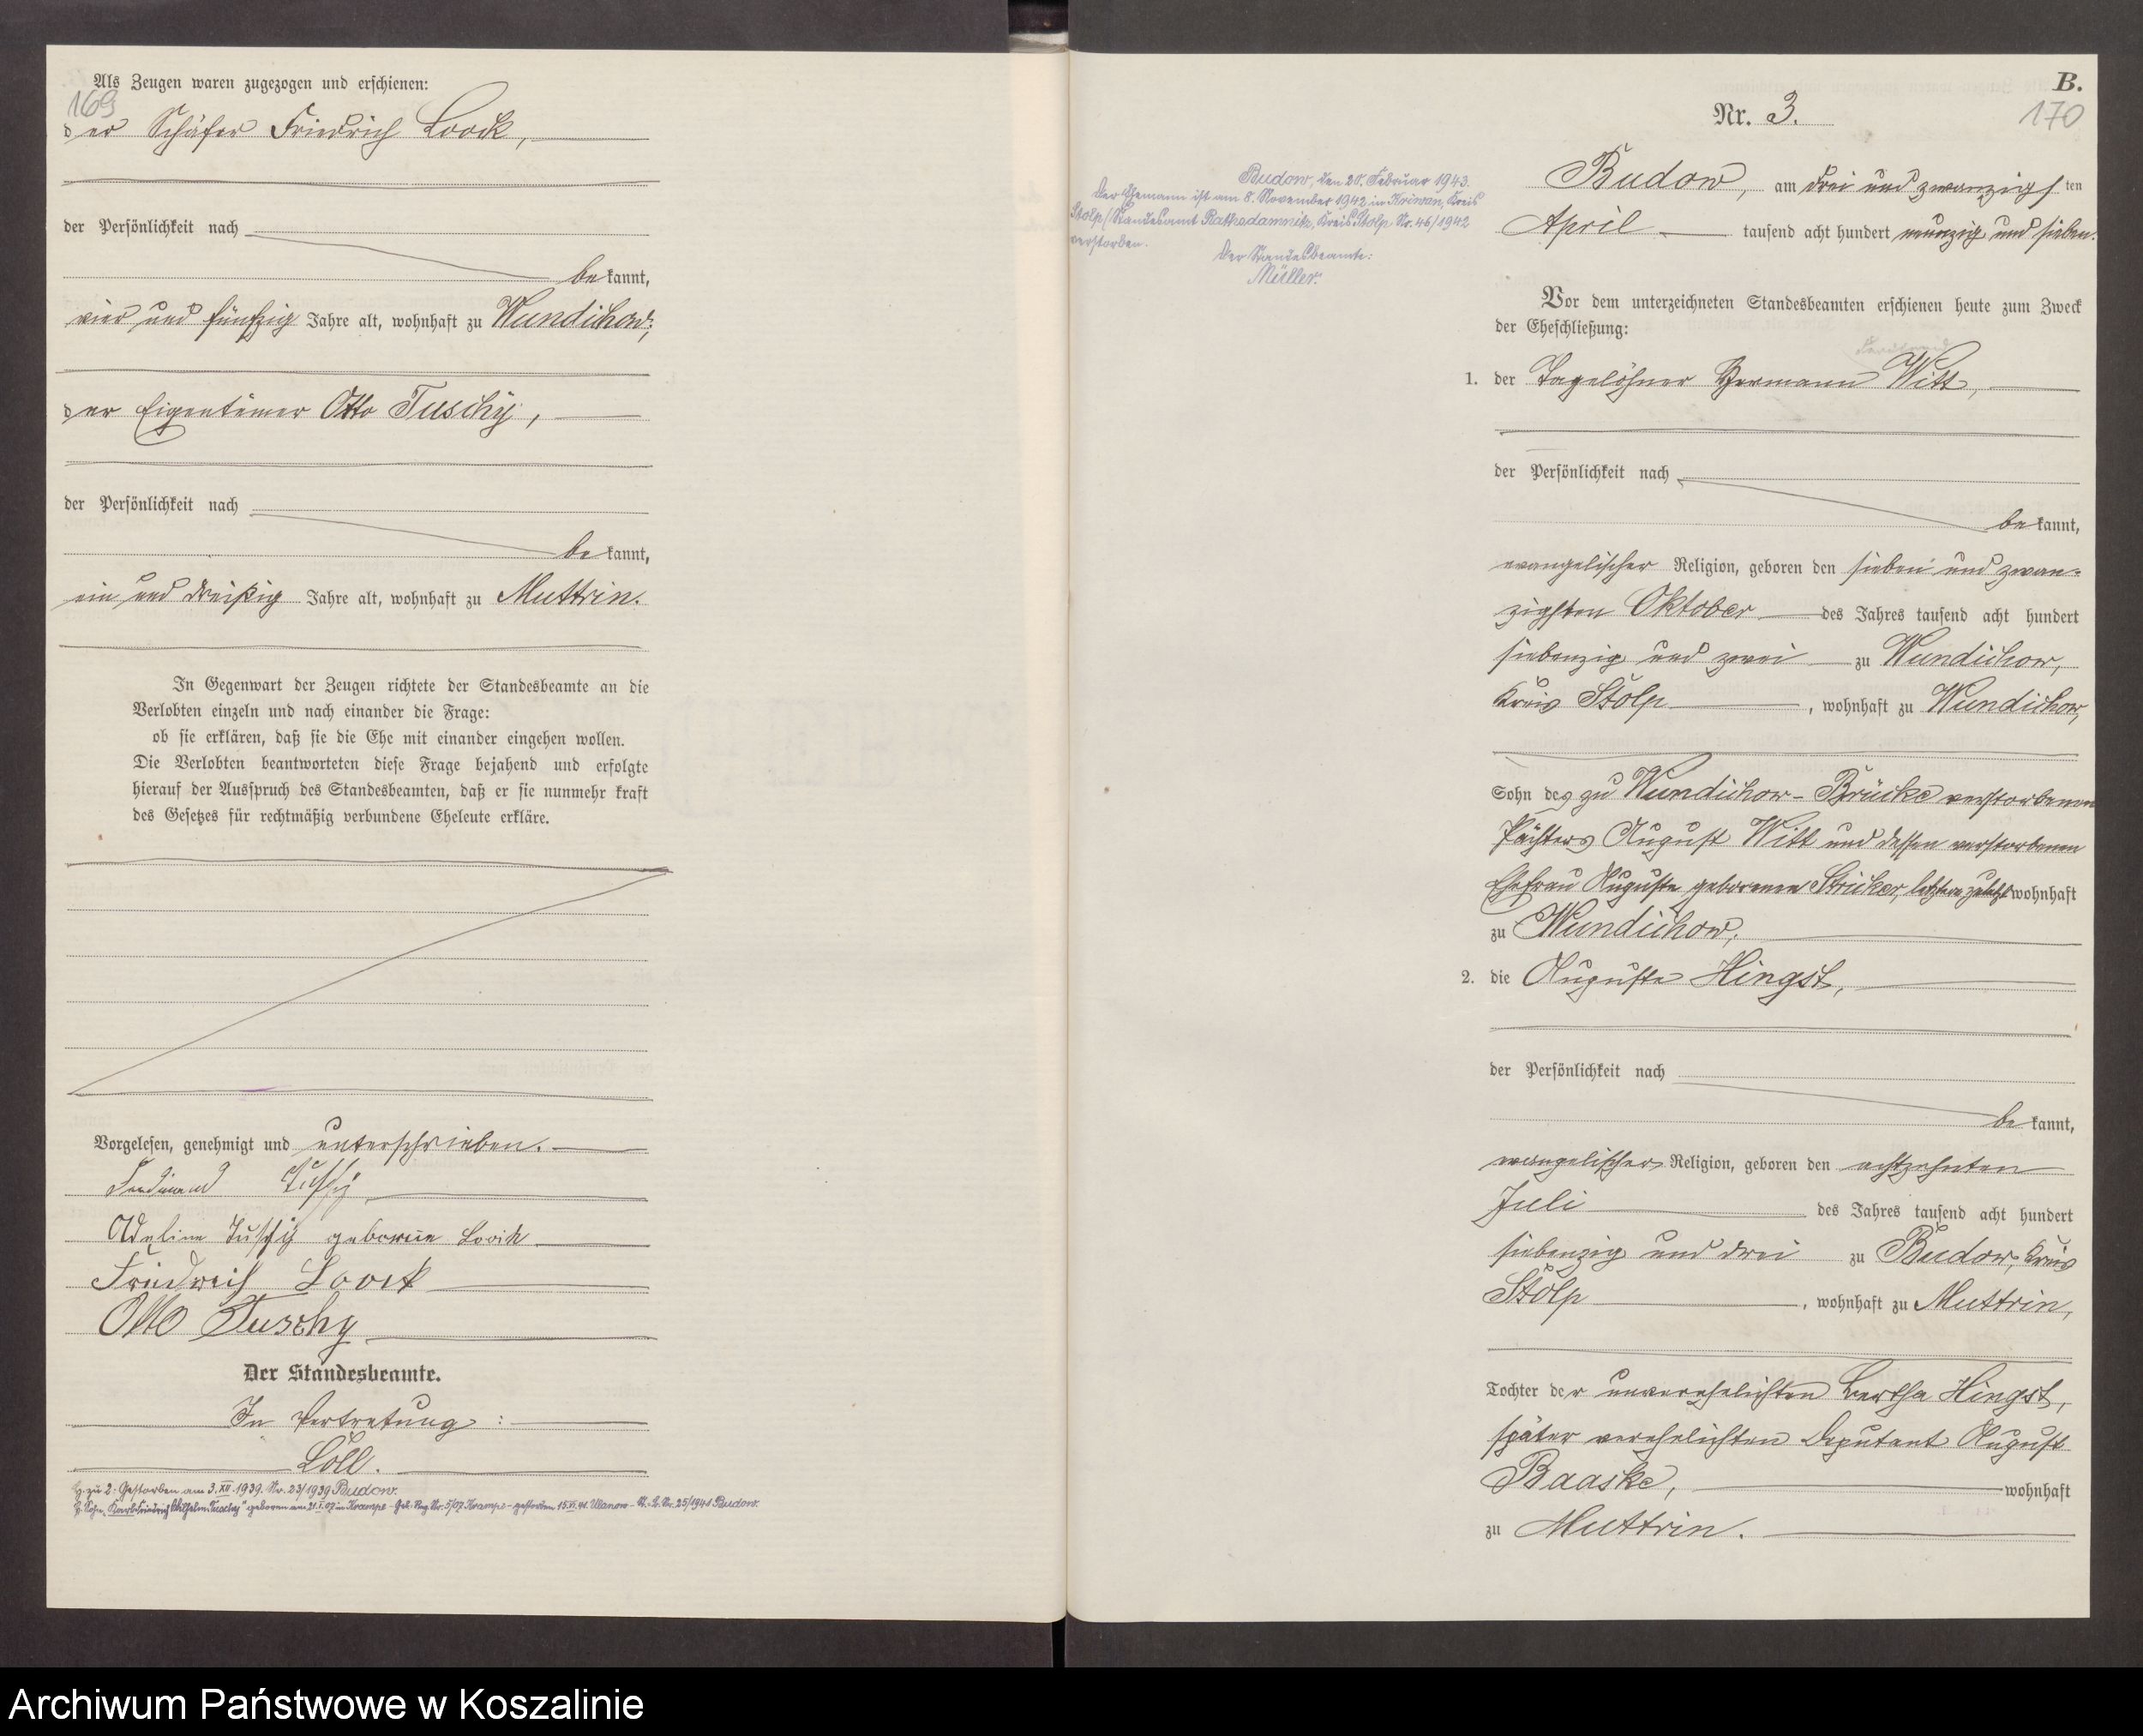 Als Zeugen waren zugezogen und erschienen:
169
der Schäfer Friedrich Loock,
der Persönlichkeit nach
bekannt,
vier und fünfzig Jahre alt, wohnhaft zu Wundichow;
der Eigentümer Otto Tuschy,
der Persönlichkeit nach
bekannt,
ein und dreißig Jahre alt, wohnhaft zu Muttrin.
In Gegenwart der Zeugen richtete der Standesbeamte an die
Verlobten einzeln und nach einander die Frage:
ob sie erklären, daß sie die Ehe mit einander eingehen wollen.
Die Verlobten beantworteten diese Frage bejahend und erfolgte
hierauf der Ausspruch des Standesbeamten, daß er sie nunmehr kraft
des Gesetzes für rechtmäßig verbundene Eheleute erkläre.
Vorgelesen, genehmigt und unterschrieben.
Ferdinand Tuschy
Adeline Tuschy geborene Loock
Friedreich Loock
Otto Tuschy
Der Standesbeamte.
In Vertretung:
Löll.
H. zu 2: Gestorben am 3. XII. 1939. Nr. 23/1939 Budow.
geboren am 31. I. 07 in Krampe - Geb. Reg. Nr. 5/07 Krampe - gestorben 15. VI. 41 Ulanow - St. A. Nr. 25/1941 Budow.
B.
Nr. 3.
170
Budow, den 20. Februar 1943.
Der Ehemann ist am 8. November 1942 in Kriwan, Kreis
Stolp (Standesamt Rathsdamnitz, Kreis Stolp Nr. 46/1942
verstorben.
Der Standesbeamte:
Müller.
Budow, am drei und zwanzigsten
April tausend acht hundert neunzig und sieben.
Vor dem unterzeichneten Standesbeamten erschienen heute zum Zweck
der Eheschließung:
1. der Tagelöhner Hermann Witt,
der Persönlichkeit nach
bekannt,
evangelischer Religion, geboren den sieben und zwan-
zigsten Oktober des Jahres tausend acht hundert
siebenzig und zwei zu Wundichow,
Kreis Stolp, wohnhaft zu Wundichow,
Sohn des zu Wundichow-Brücke verstorbenen
Pächters August Witt und dessen verstorbenen
Ehefrau Auguste geborenen Stricker, letztere zuletzt wohnhaft
zu Wundichow;
2. die Auguste Hingst,
der Persönlichkeit nach
bekannt,
evangelischer Religion, geboren den achtzehnten
Juli des Jahres tausend acht hundert
siebenzig und drei zu Budow, Kreis
Stolp, wohnhaft zu Muttrin,
Tochter der unverehelichten Bertha Hingst,
später verehelichten Deputant August
Baaske, wohnhaft
zu Muttrin.
Archiwum Państwowe w Koszalinie